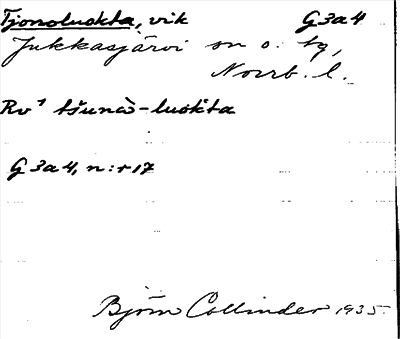 Tjonoluokta, vik G3a4
Jukkasjärvi sn o. tg,
Norrb. l.
Rv¹ tšunà-luokta
G3a4, n:r 17
Björn Collinder 1935.